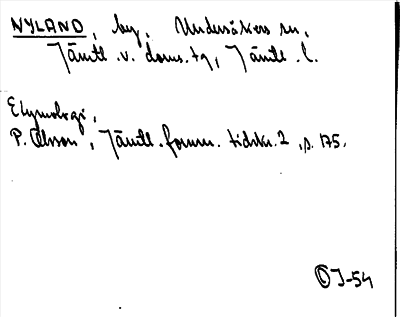 NYLAND, by, Undersåkers sn,
Jämtl. v. doms. tg, Jämtl. l.
Etymologi,
P. Olsson, Jämtl. fornm. tidskr. 2, s. 175.
OJ-54